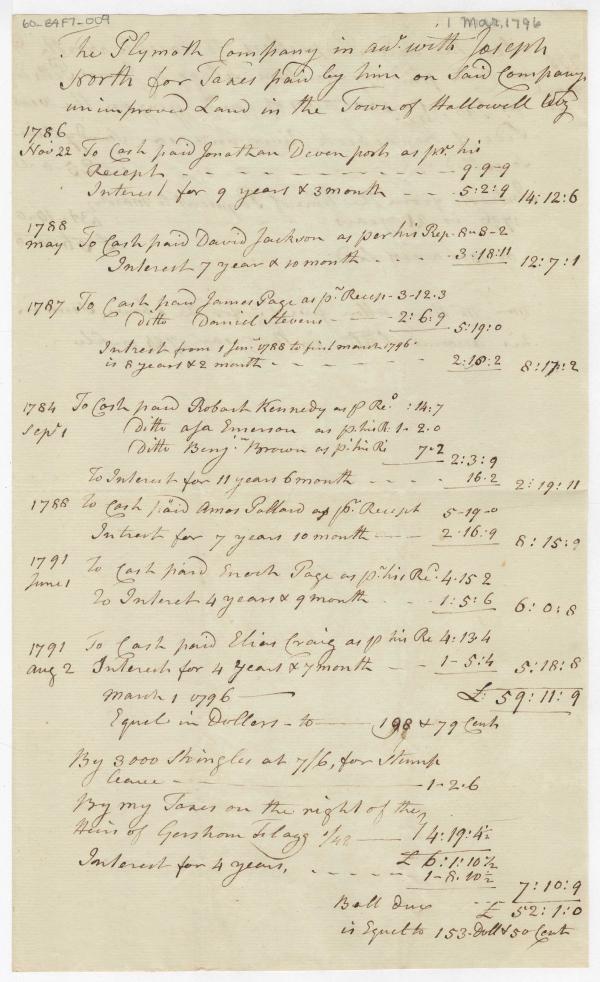 60-E4F7-009
1 Mar. 1796
The Plymoth Company in acct. with Joseph
North for Taxes paid by him on Said Company
unimproved Land in the Town of Hallowell
1786
Nov 22 To Cash paid Jonathan Devenport as pr. his
Recept - - - 9-9-9
Interest for 9 years & 3 month - - 5:2:9 14:12:6
1788
may To Cash paid David Jackson as per his Rep. 8-8-2
Interest 7 year & 10 month - - - 3:18:11 12:7:1
1787 To Cash paid James Page as pr. Recep- 3-12-3
Ditto Daniel Stevens - 2:6:9 5:19:0
Intrest from 1 Jany. 1788 to first march 1796
is 8 years & 2 month - - - 2:18:2 8:17:2
1784 To Cash paid Robart Kennedy as p Re. :14:7
Sept 1 Ditto asa Emerson as p. his R: 1-2-0
Ditto Benjn. Brown as p. his R 7-2 2:3:9
To Interest for 11 years 6 month - - - 16.2 2:19:11
1788 to Cash paid Amos Pollard as pr. Recept 5-19-0
Intrest for 7 years 10 month - - 2-16-9 8:15:9
1791
June 1 To Cash paid Enoch Page as pr. his Re. 4-15 2
To Interet 4 years & 9 month - - 1:5:6 6:0:8
1791 To Cash paid Elias Craig as p his Re 4:13-4
aug 2 Interest for 4 years & 7 month - - 1-5:4 5:18:8
March 1 1796 £: 59:11:9
Equel in Dollers - to 198 & 79 Cent
By 3000 Shingles at 7/6, for Stump
leave - 1-2-6
By my Taxes on the right of the
Heirs of Gershom Flagg 1/48 4:19:4½
£ 6:1:10½
Interest for 4 years, - - - 1-8:10½ 7:10:9
Ball due - - £ 52:1:0
is Equel to 153-Doll & 50 Cent